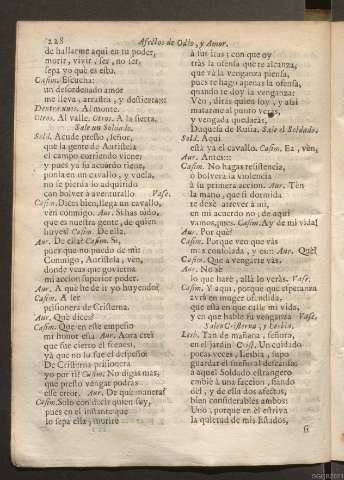 228 Afectos de Odio, y Amor.
de hallarme aqui en tu poder,
morir, vivir, ser, no ser,
sepa yo què es esto.
Casim. Escucha:
un desordenado amor
me lleva, arrastra, y
Dentro unos. Al monte.
Otros. Al valle. Otros. A la sierra.
Sale un Soldado.
Sold. Acude presto, señor,
que la gente de Auristela
el campo corriendo viene;
y pues ya su acuerdo tiene,
ponla en un cavallo, y vuela,
no se pierda lo adquirido
con bolver à aventurallo. Vase.
Casim. Dices bien, llega un cavallo,
ven conmigo. Aur. Si has oìdo,
que es nuestra gente, de quien
huyes? Casim. De ella.
Aur. De ella? Casim. Si,
pues que no puedo de mi:
Conmigo, Auristela, vèn,
donde veas que govierna
mi accion superior poder.
Aur. A què he de ir yo huyendo?
Casim. A ser
prisionera de Cristerna.
Aur. Què dices?
Casim. Que en este empeño
mi honor està. Aur. Aora creì
que fue cierto el frenesì,
ya que no lo fue el despeño:
De Cristerna prisionera
yo por ti? Casim. No digas mas,
que presto vengar podràs
esse error. Aur. De què manera?
Casim. Solo con decir quien soy,
pues en el instante que
lo sepa ella, morirè
à sus iras; con que oy
tràs la ofensa que te alcanza,
que và la venganza piensa,
pues te hago apenas la ofensa,
quando te doy la venganza:
Vèn, diràs quien soy, y assi
mataràme al punto
y vengada quedaràs,
Duquesa de Rusia. Sale el Soldado.
Sold. Aqui
està ya el cavallo. Casim. Ea, vèn,
Aur.
Casim. No hagas resistencia,
ò bolverà la violencia
à su primera accion. Aur. Tèn
la mano, que si dormida
te dexè atrever à mi,
en mi acuerdo no; de aqui
vamos, pues. Casim. Ay de mi vida!
Aur. Por què?
Casim. Porque veo que vàs
mas consolada, y es Aur. Què?
Casim. Que à vengarte vàs.
Aur. No sè
lo que harè, allà lo veràs. Vase.
Casim. Y aqui, porque que esperanza
avrà en muger ofendida,
que està en que calle mi vida,
y en que hable su venganza. Vase.
Salen Cristerna, y Lesbia.
Lesb. Tan de mañana, señora,
en el jardin? Crist. Un cuidado
pocas veces, Lesbia, supo
guardar el sueño al descanso:
à aquel Soldado estrangero
embiè à una faccion, fiando
dèl, y de ella dos afectos,
bien considerables ambos:
Uno, porque en èl estriva
la quietud de mis Estados,